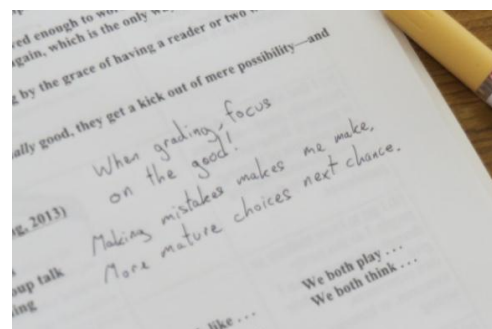 red enough to wo
again, which is the only wa
g by the grace of having a reader or two
ally good, they get a kick out of mere possibility—and
When grading, focus
on the good!
Making mistakes makes me make,
More mature choices next chance.
2013)
oup talk
ing
We both play . . .
We both think . . .
like . . .